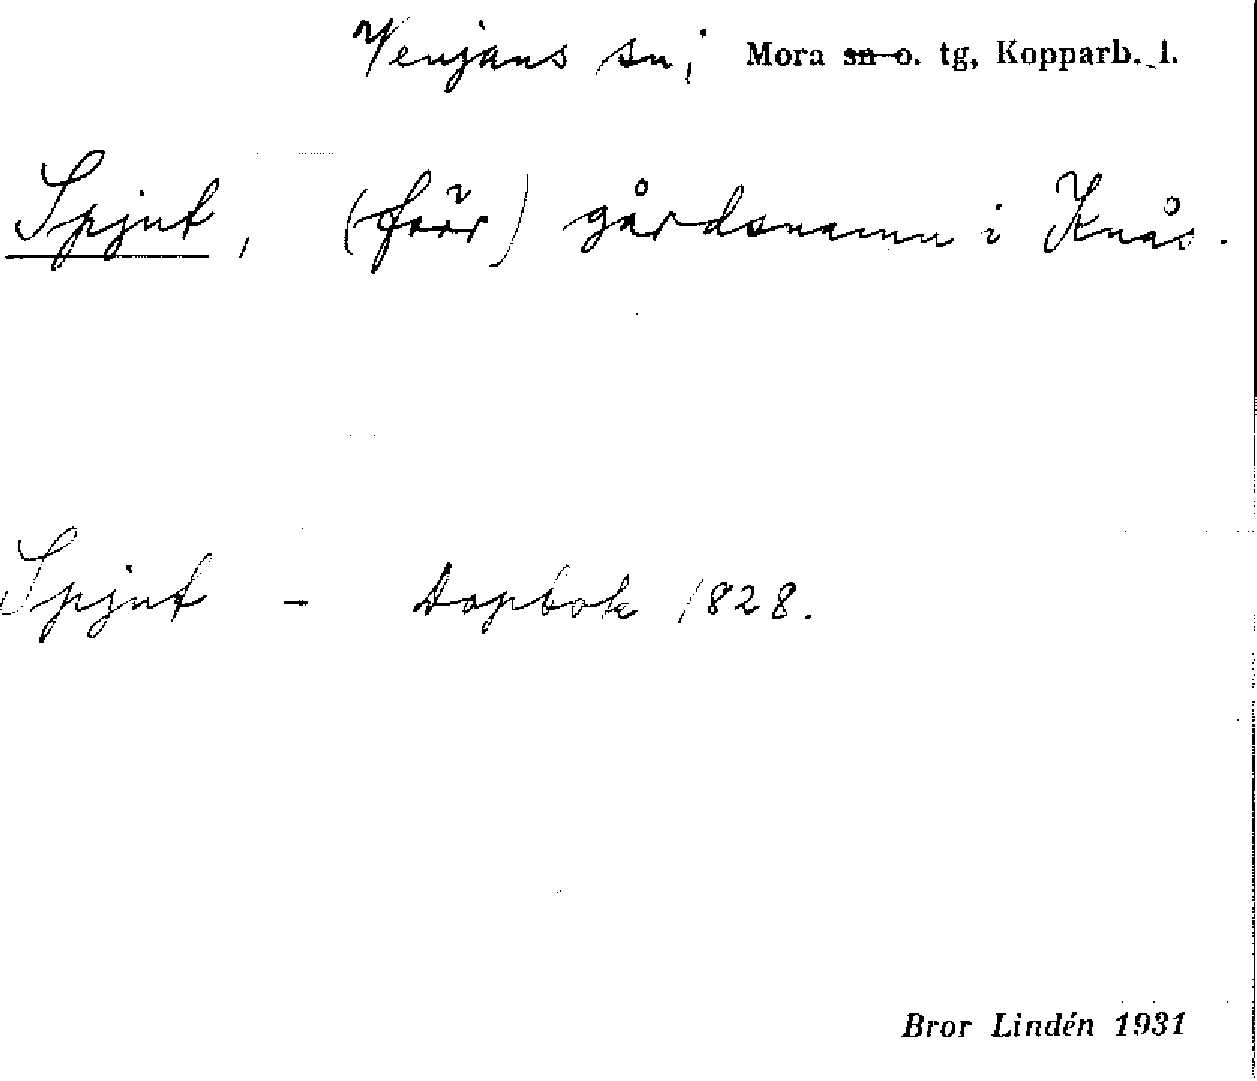 Venjans sn, Mora sn o. tg, Kopparb. l.
Spjut, (förr) gårdsnamn i Knås.
Spjut - Dopbok 1828.
Bror Lindén 1931